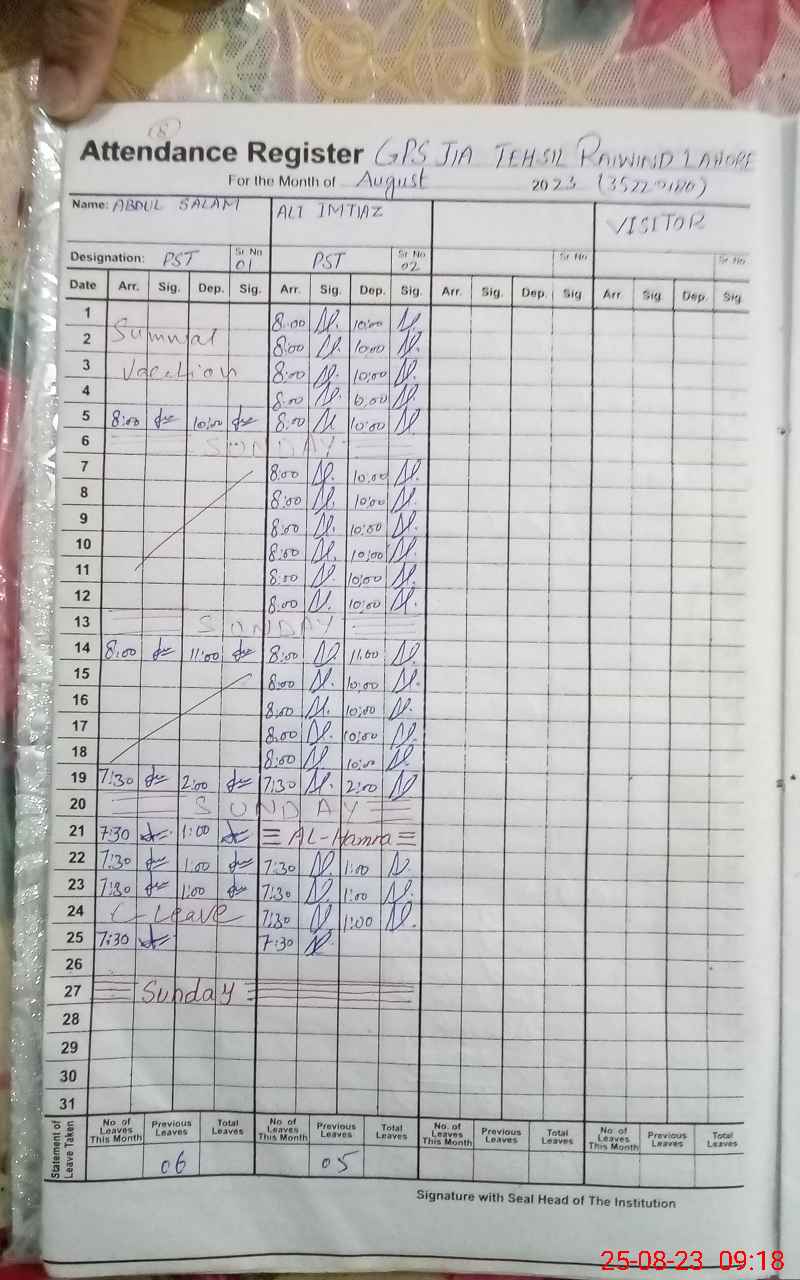 (8)
Attendance Register GPS JIA TEHSIL RAIWIND LAHORE
For the Month of August 2023
Name: ABDUL SALAM ALI IMTIAZ VISITOR
Designation: PST Sr No 01 PST Sr No 02 Sr No Sr No
Date Arr. Sig. Dep. Sig. Arr. Sig. Dep. Sig. Arr. Sig. Dep. Sig Arr Sig Dep. Sig
1 8:00 10:00
2 Summar 8:00 10:00
3 Vacation 8:00 10:00
4 8:00
5 8:00 10:00 8:00 10:00
6 SUNDAY
7 8:00 10:00
8 8:00 10:00
9 8:00 10:00
10 8:00 10:00
11 8:00 10:00
12 8:00 10:00
13 SUNDAY
14 8:00 11:00 8:00 11:00
15 8:00 10:00
16 8:00 10:00
17 8:00 10:00
18 8:00 10:00
19 7:30 2:00 7:30 2:00
20 SUNDAY
21 7:30 1:00 AL-Hamra
22 7:30 1:00 7:30 1:00
23 7:30 1:00 7:30 1:00
24 Leave 7:30 1:00
25 7:30 7:30
26
27 Sunday
28
29
30
31
Statement of Leave Taken
No. of Leaves This Month Previous Leaves Total Leaves No. of Leaves This Month Previous Leaves Total Leaves No. of Leaves This Month Previous Leaves Total Leaves No. of Leaves This Month Previous Leaves Total Leaves
06 05
Signature with Seal Head of The Institution
25-08-23 09:18